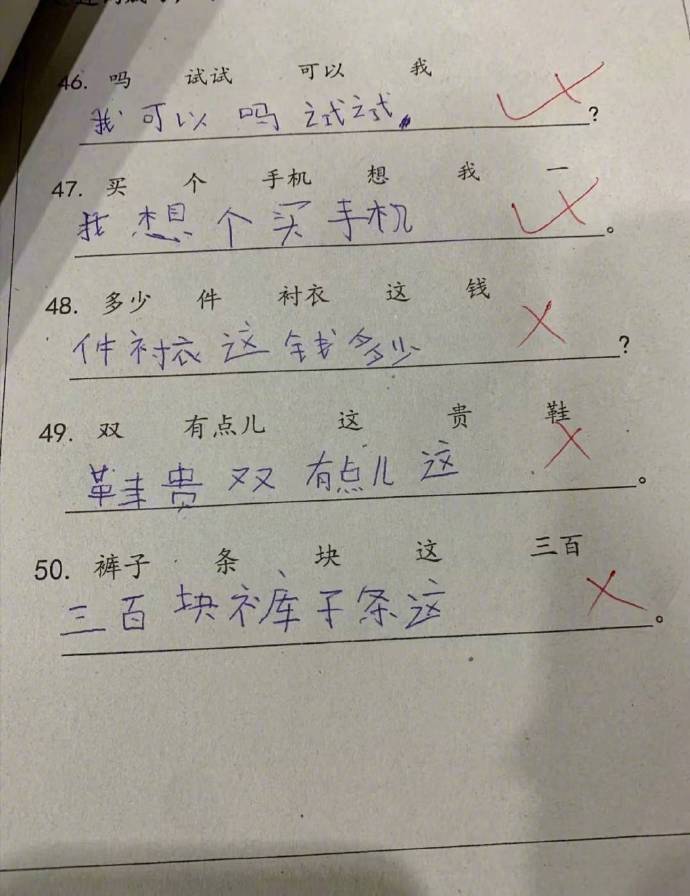 46. 吗 试试 可以 我
我可以吗试试。?
47. 买 个 手机 想 我 一
我想个买手机。
48. 多少 件 衬衣 这 钱
件衬衣这钱多少?
49. 双 有点儿 这 贵 鞋
鞋贵双有点儿这。
50. 裤子 条 块 这 三百
三百块裤子条这。